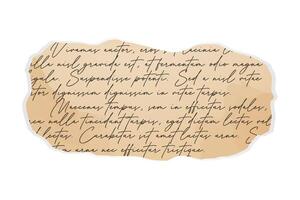 Vivamus auctor, eros
nisl gravida est, et fermentum odio magna
ligula. Suspendisse potenti. Sed a nisl vitae
tortor dignissim dignissim in vitae turpis.
Maecenas tempus, sem in efficitur sodales,
nulla tincidunt turpis, eget dictum lectus vel
lectus. Curabitur sit amet luctus urna. S
urna nec efficitur tristique.